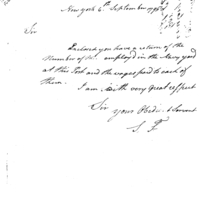 New York 6th September
Sir
Inclosed you have a return of the
Number of M. employed in the Navy yard
at this Port and the wages paid to each of
them.
I am with very great respect
Sir your Obedt. Servant
S. F